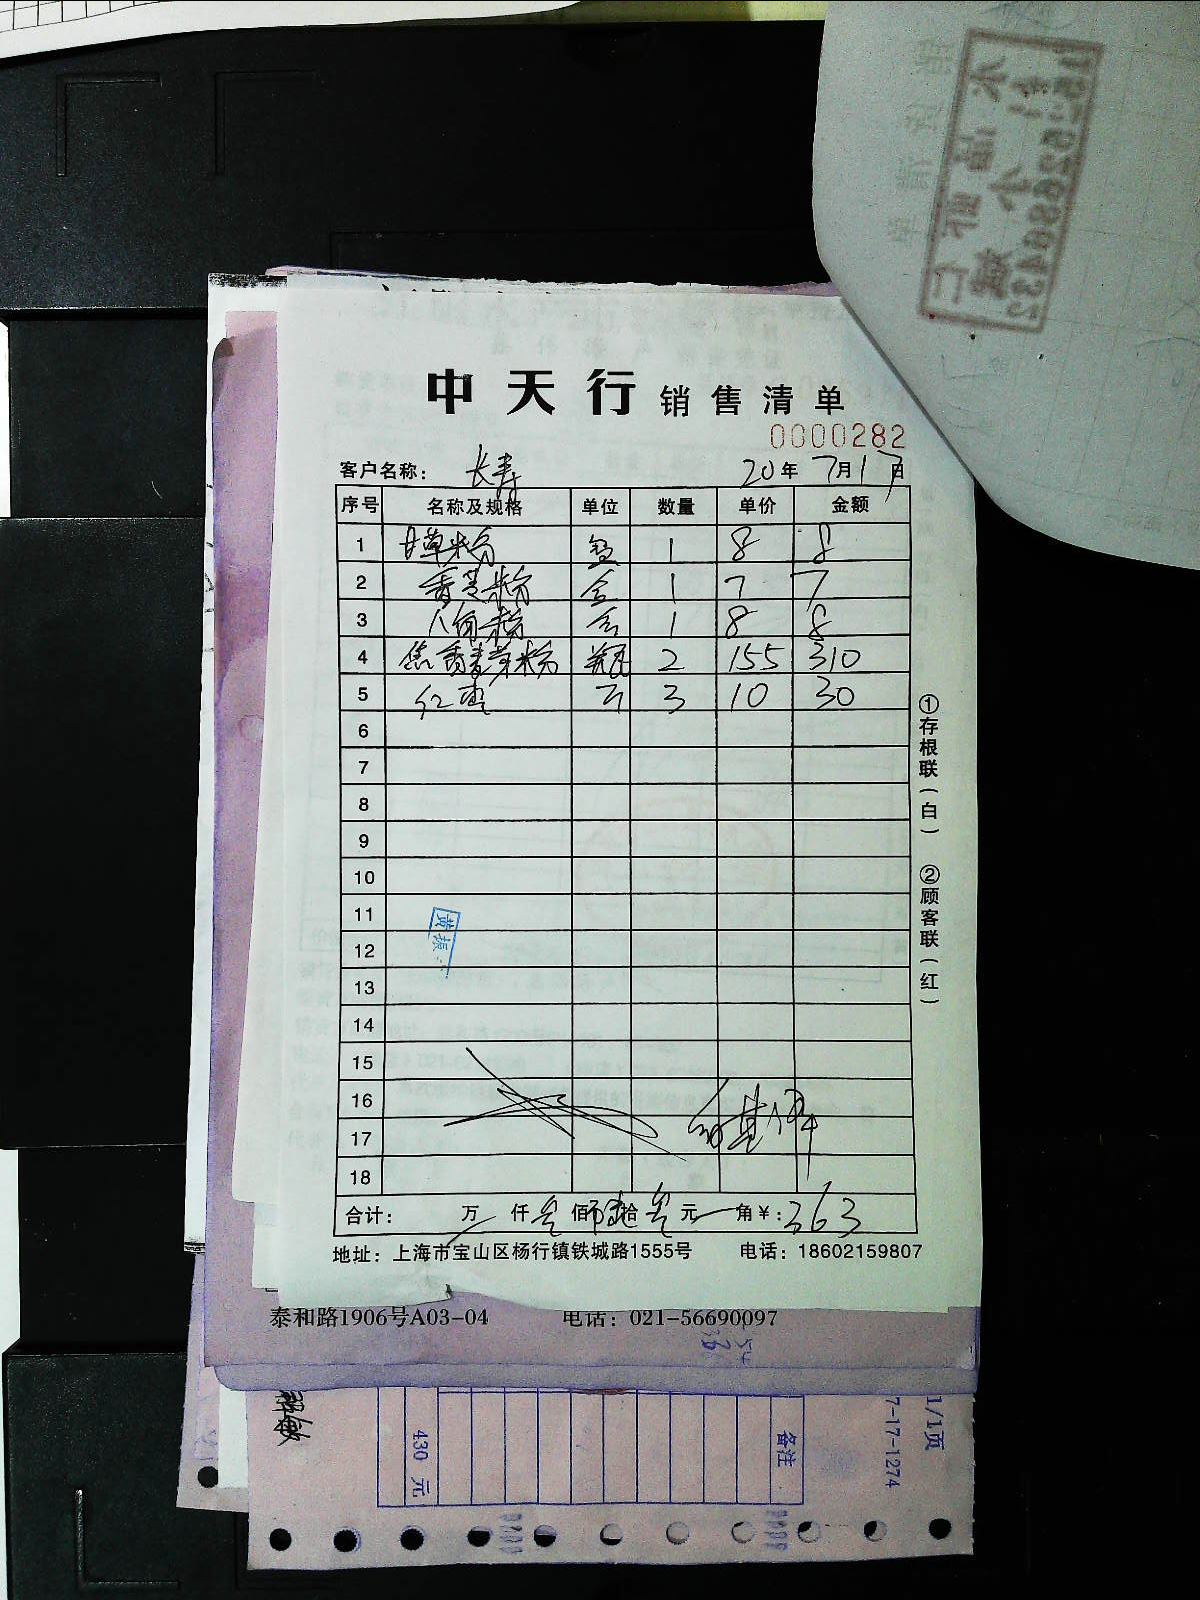 中天行 销售清单
0000282
客户名称： 长寿 20年7月17日
序号 名称及规格 单位 数量 单价 金额
1 甘草粉 盒 1 8 8
2 香芝粉 盒 1 7 7
3 八角粉 盒 1 8 8
4 焦香麦芽粉 瓶 2 155 310
5 红枣 3 10 30
6
7
8
9
10
11
12
13
14
15
16
17
18
黄振
合计： 万 仟 叁 佰 陆 拾 叁 元 角 ¥：363
地址：上海市宝山区杨行镇铁城路1555号 电话：18602159807
①存根联（白）
②顾客联（红）
泰和路1906号A03-04 电话：021-56690097
430 元
备注
7-17-1274
1/1页